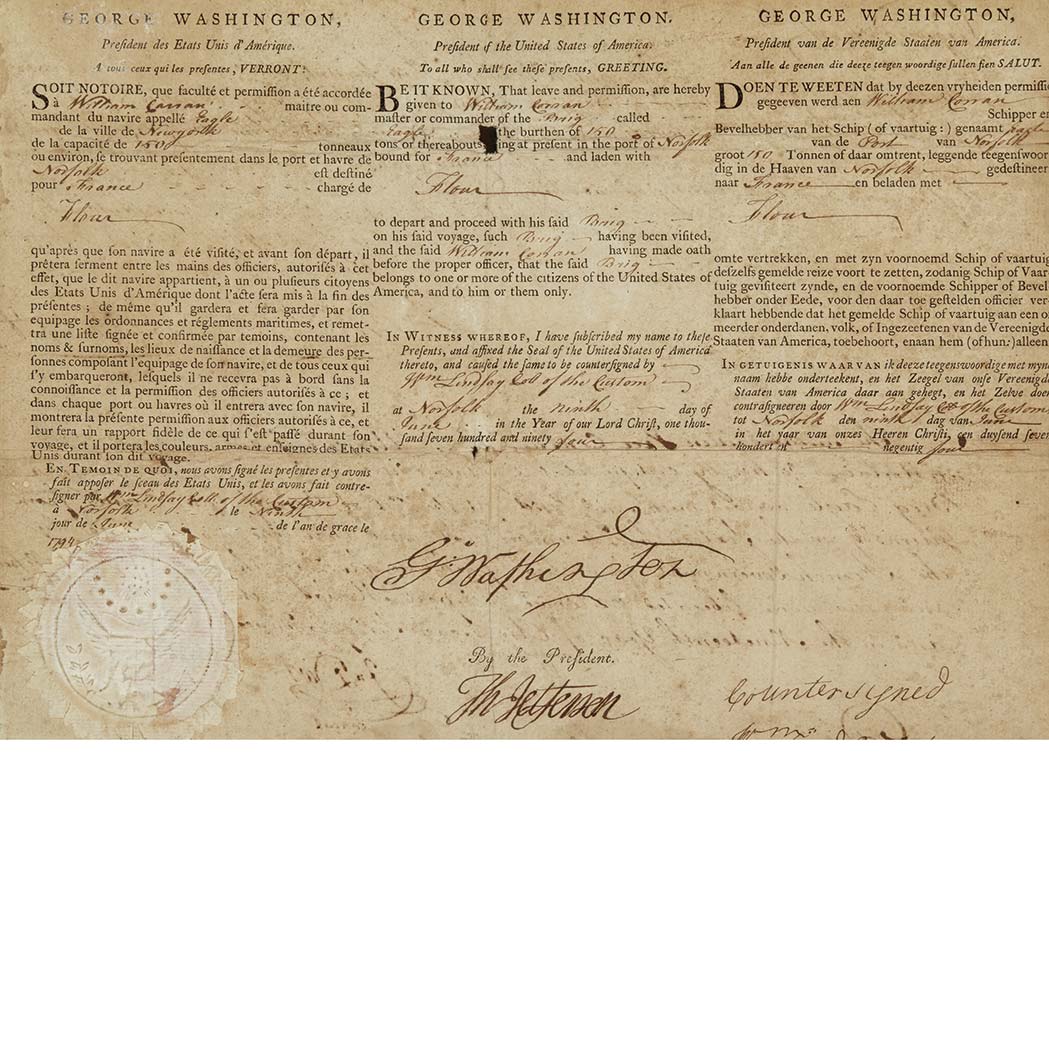 GEORGE WASHINGTON,
Preſident des Etats Unis d'Amérique.
A tous ceux qui les preſentes, VERRONT:
SOIT NOTOIRE, que faculté et permiſſion a été accordée
à William Corran maitre ou com-
mandant du navire appellé Eagle
de la ville de Newyork
de la capacité de 150 tonneaux
ou environ, ſe trouvant preſentement dans le port et havre de
Norfolk eſt deſtiné
pour France chargé de
Flour
qu'après que ſon navire a été viſité, et avant ſon départ, il
prêtera ſerment entre les mains des officiers, autoriſés à cet
effet, que le dit navire appartient, à un ou pluſieurs citoyens
des Etats Unis d'Amérique dont l'acte ſera mis à la fin des
préſentes ; de même qu'il gardera et ſera garder par ſon
equipage les ordonnances et réglements maritimes, et remet-
tra une liſte ſignée et confirmée par temoins, contenant les
noms & ſurnoms, les lieux de naiſſance et la demeure des per-
ſonnes compoſant l'equipage de ſon navire, et de tous ceux qui
s'y embarqueront, leſquels il ne recevra pas à bord ſans la
connoiſſance et la permiſſion des officiers autoriſés à ce ; et
dans chaque port ou havres où il entrera avec ſon navire, il
montrera la préſente permiſſion aux officiers autoriſés à ce, et
leur fera un rapport fidèle de ce qui s'eſt paſſé durant ſon
voyage, et il portera les couleurs, armes et enſeignes des Etats
Unis durant ſon dit voyage.
EN TEMOIN DE QUOI, nous avons ſigné les preſentes et y avons
fait appoſer le ſceau des Etats Unis, et les avons fait contre-
ſigner par Wm Lindsay Coll of the Custom
à Norfolk le Ninth
jour de June de l'an de grace le
1794
GEORGE WASHINGTON.
Preſident of the United States of America.
To all who ſhall ſee theſe preſents, GREETING.
BE IT KNOWN, That leave and permiſſion, are hereby
given to William Corran
maſter or commander of the Brig called
Eagle the burthen of 150
tons or thereabouts ing at preſent in the port of Norfolk
bound for France and laden with
Flour
to depart and proceed with his ſaid Brig
on his ſaid voyage, ſuch Brig having been viſited,
and the ſaid William Corran having made oath
before the proper officer, that the ſaid Brig
belongs to one or more of the citizens of the United States of
America, and to him or them only.
IN WITNESS WHEREOF, I have ſubſcribed my name to theſe
Preſents, and affixed the Seal of the United States of America
thereto, and cauſed the ſame to be counterſigned by
Wm Lindsay Coll of the Custom
at Norfolk the ninth day of
June in the Year of our Lord Chriſt, one thou-
ſand ſeven hundred and ninety four
GEORGE WASHINGTON,
Preſident van de Vereenigde Staaten van America.
Aan alle de geenen die deeze teegen woordige ſullen ſien SALUT.
DOEN TE WEETEN dat by deezen vryheiden permiſſie
gegeeven werd aen William Corran
Schipper en
Bevelhebber van het Schip (of vaartuig :) genaamt Eagle
van de Port van Norfolk
groot 150 Tonnen of daar omtrent, leggende teegenſwoor
dig in de Haaven van Norfolk gedeſtineer
naar France en beladen met
Flour
omte vertrekken, en met zyn voornoemd Schip of vaartuig
deſzelfs gemelde reize voort te zetten, zodanig Schip of Vaar
tuig geviſiteert zynde, en de voornoemde Schipper of Bevel
hebber onder Eede, voor den daar toe geſtelden officier ver
klaart hebbende dat het gemelde Schip of vaartuig aan een o
meerder onderdanen, volk, of Ingezeetenen van de Vereenigde
Staaten van America, toebehoort, enaan hem (ofhun:)alleen
IN GETUIGENIS WAAR VAN ik deeze teegenswoordige met myn
naam hebbe onderteekent, en het Zeegel van onſe Vereenigd
Staaten van America daar aan gehegt, en het Zelve doen
contraſigneeren door Wm Lindsay Coll of the Custom
tot Norfolk den ninth dag van June
in het jaar van onzes Heeren Chriſti, een duyſend ſeven
hondert en negentig four
Go Washington
By the Preſident.
Th Jefferson
Countersigned
Wm